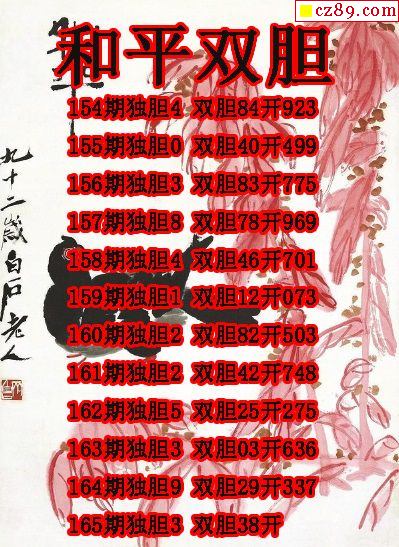 cz89.com
和平双胆
154期独胆4 双胆84开923
155期独胆0 双胆40开499
156期独胆3 双胆83开775
157期独胆8 双胆78开969
158期独胆4 双胆46开701
159期独胆1 双胆12开073
160期独胆2 双胆82开503
161期独胆2 双胆42开748
162期独胆5 双胆25开275
163期独胆3 双胆03开636
164期独胆9 双胆29开337
165期独胆3 双胆38开
九十二岁白石老人